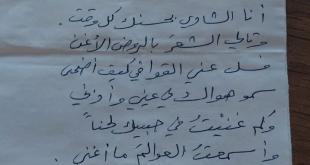 أنا الشادي بحسنك كل وقت .
وتالي الشعر بالروض الأغن
فسل عني القوافي كيف أضحى
سمو هواك في عيني وأذني
وكم غنيت في حبيك لحناً
وأسمعت العوالم ما أغني .